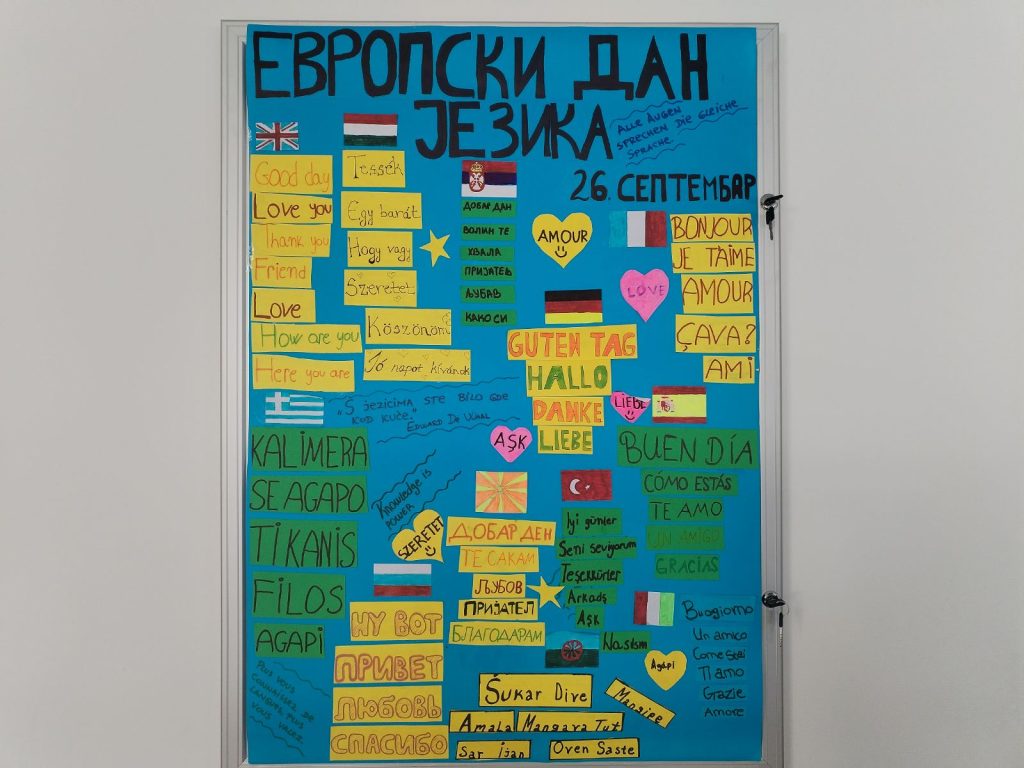 ЕВРОПСКИ ДАН
ЈЕЗИКА
ALLE AUGEN
SPRECHEN DIE GLEICHE
SPRACHE
26. СЕПТЕМБАР
Good day
Love you
Thank you
Friend
Love
How are you
Here you are
Tessék
Egy barát
Hogy vagy
Szeretet
Köszönöm
Jó napot kívánok
ДОБАР ДАН
ВОЛИМ ТЕ
ХВАЛА
ПРИЈАТЕЉ
ЉУБАВ
КАКО СИ
AMOUR
LOVE
BONJOUR
JE T'AIME
AMOUR
ÇAVA?
AMI
GUTEN TAG
HALLO
DANKE
LIEBE
LIEBE
AŞK
„S JEZICIMA STE BILO GDE
KOD KUĆE."
EDWARD DE
KALIMERA
SE AGAPO
TI KANIS
FILOS
AGAPI
Knowledge is
power
SZERETET
BUEN DÍA
CÓMO ESTÁS
TE AMO
UN AMIGO
GRACIAS
ДОБАР ДЕН
ТЕ САКАМ
ЉУБОВ
ПРИЈАТЕЛ
БЛАГОДАРАМ
İyi günler
Seni seviyorum
Teşekkürler
Arkadş
Aşk
Nasılsın
НУ ВОТ
ПРИВЕТ
ЛЮБОВЬ
СПАСИБО
Buogiorno
Un amico
Come stai
Ti amo
Grazie
Amore
Agapi
PLUS VOUS
CONNAISSEZ DE
LANGUES, PLUS
VOUS VALEZ.
Šukar Dive
Mangipe
Amala
Mangava Tut
Sar ijan
Oven Saste